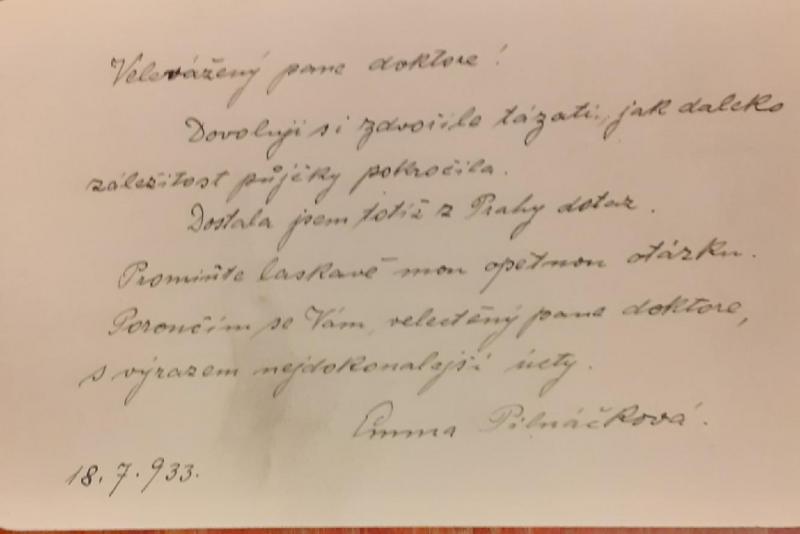 Velevážený pane doktore!
Dovoluji si zdvořile tázati, jak daleko
záležitost půjčky pokročila.
Dostala jsem totiž z Prahy dotaz.
Promiňte laskavě mou opětnou otázku.
Poroučím se Vám, velectěný pane doktore,
s výrazem nejdokonalejší úcty.
Emma Pilnáčková.
18.7.933.